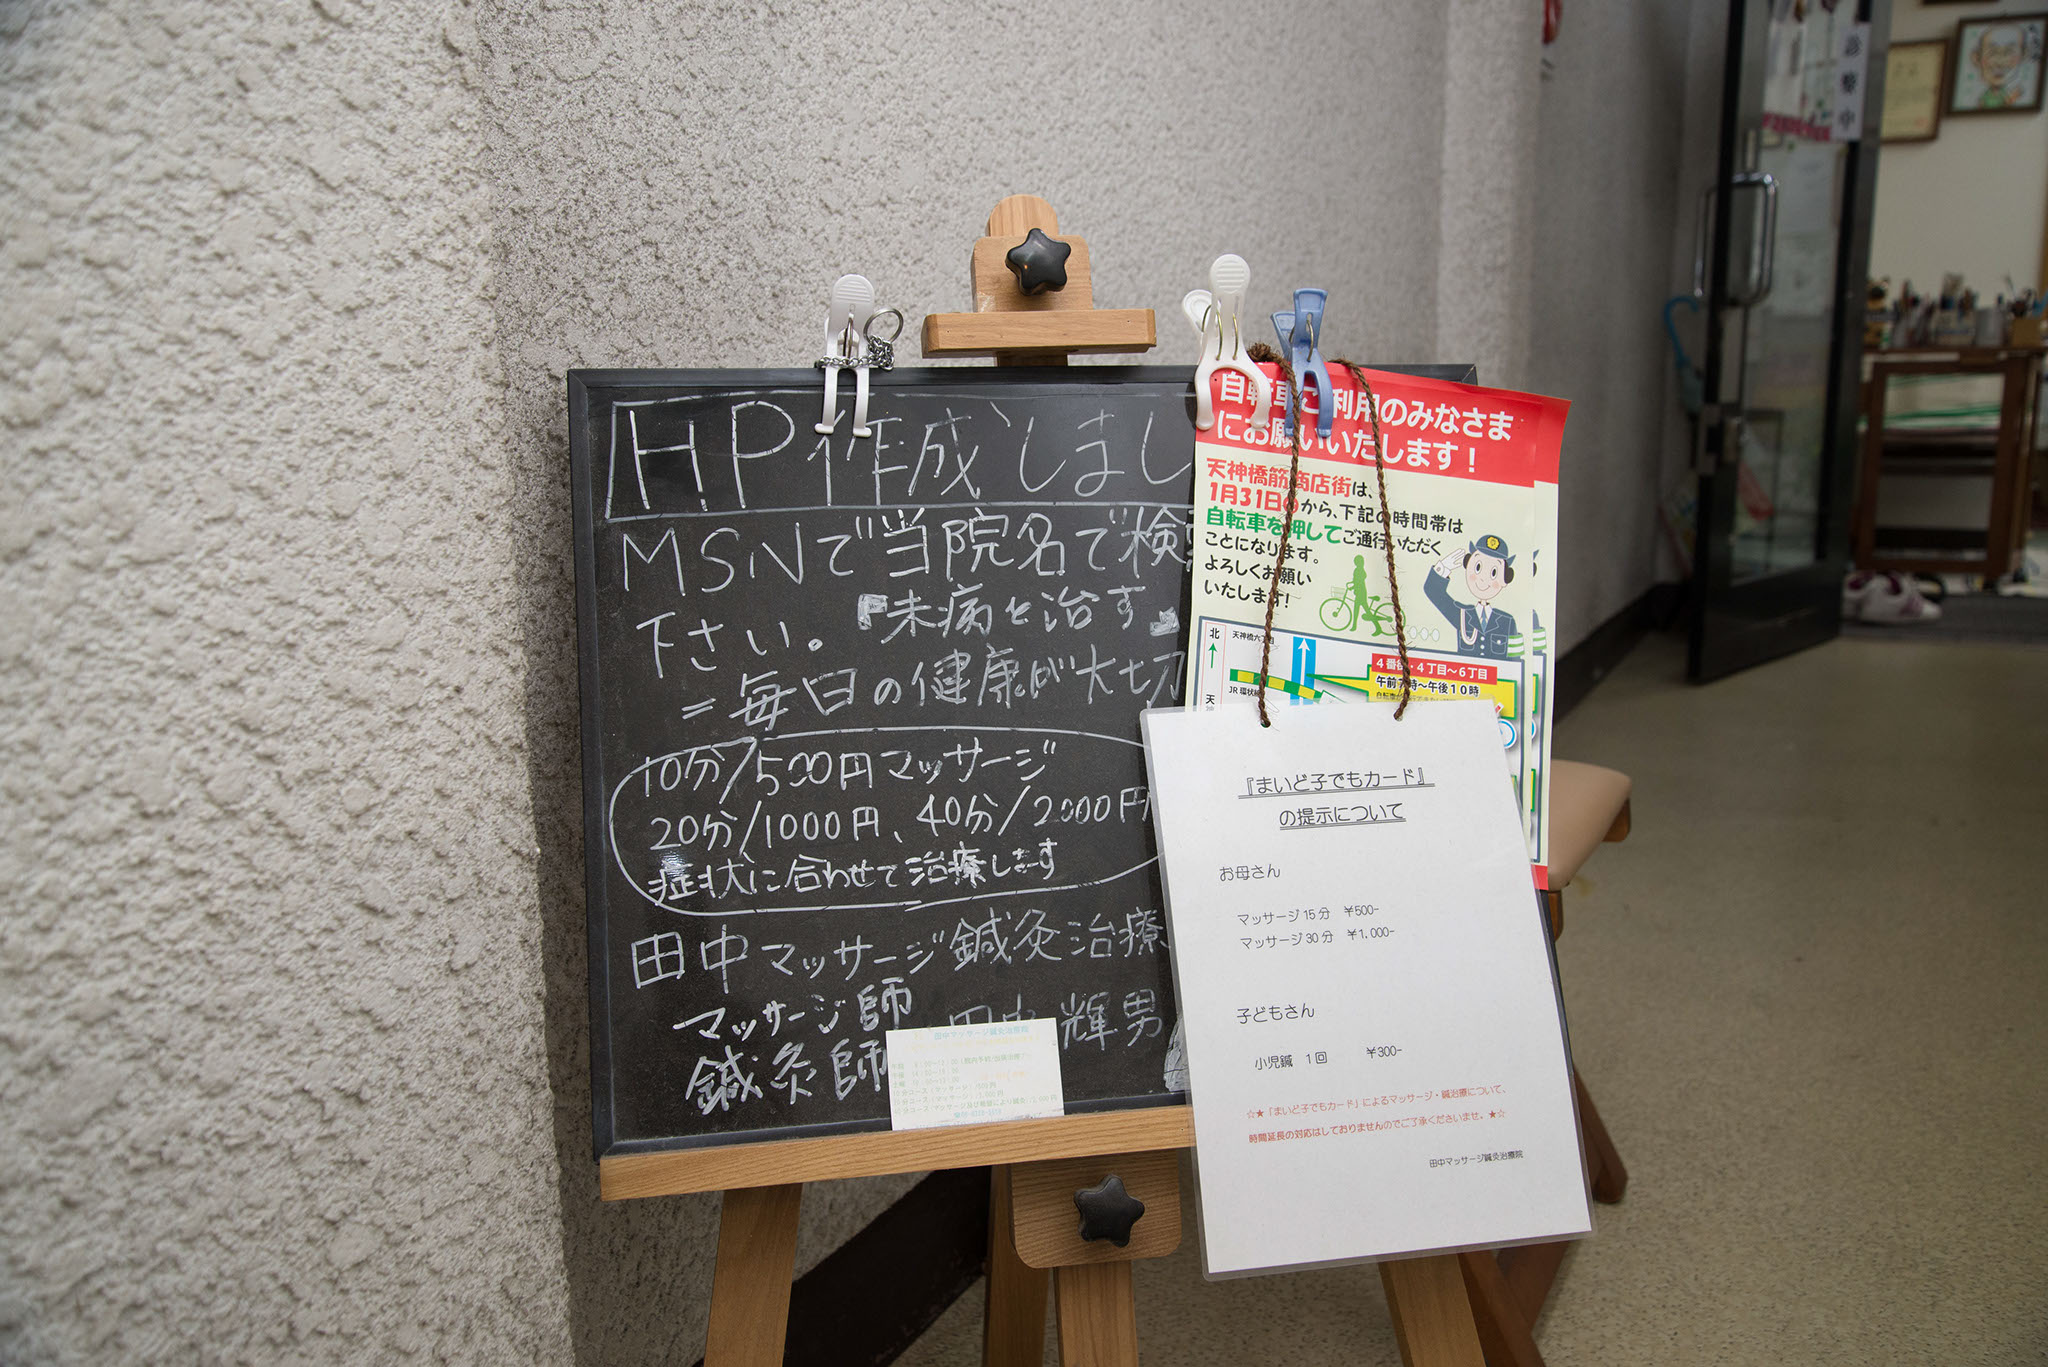 HP作成しまし
MSNで当院名で検
下さい。『未病を治す』
=毎日の健康が大切
10分/500円マッサージ
20分/1000円、40分/2000円
症状に合わせて治療します
田中マッサージ鍼灸治療
マッサージ師
鍼灸師
田中輝男
田中マッサージ鍼灸治療院
自転車ご利用のみなさま
にお願いいたします!
天神橋筋商店街は、
1月31日から、下記の時間帯は
自転車を押してご通行いただく
ことになります。
よろしくお願い
いたします!
北
天神橋六丁目
JR環状線
4番街・4丁目~6丁目
午前7時~午後10時
『まいど子でもカード』
の提示について
お母さん
マッサージ15分 ¥500-
マッサージ30分 ¥1,000-
子どもさん
小児鍼 1回 ¥300-
☆★「まいど子でもカード」によるマッサージ・鍼治療について、
時間延長の対応はしておりませんのでご了承くださいませ。★☆
田中マッサージ鍼灸治療院
診療中